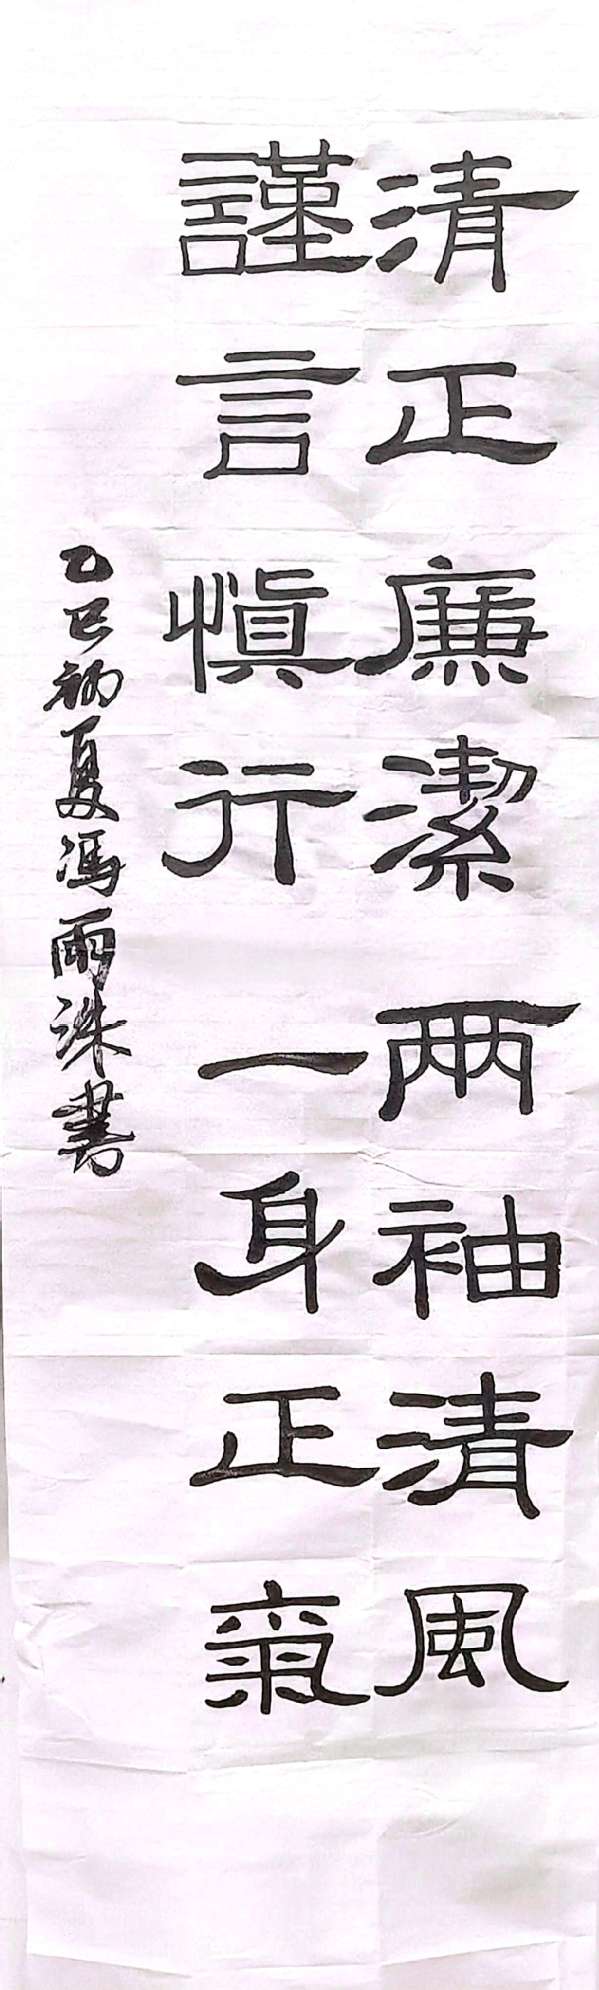 清正廉潔两袖清風
謹言慎行一身正氣
乙巳初夏冯雨洙書